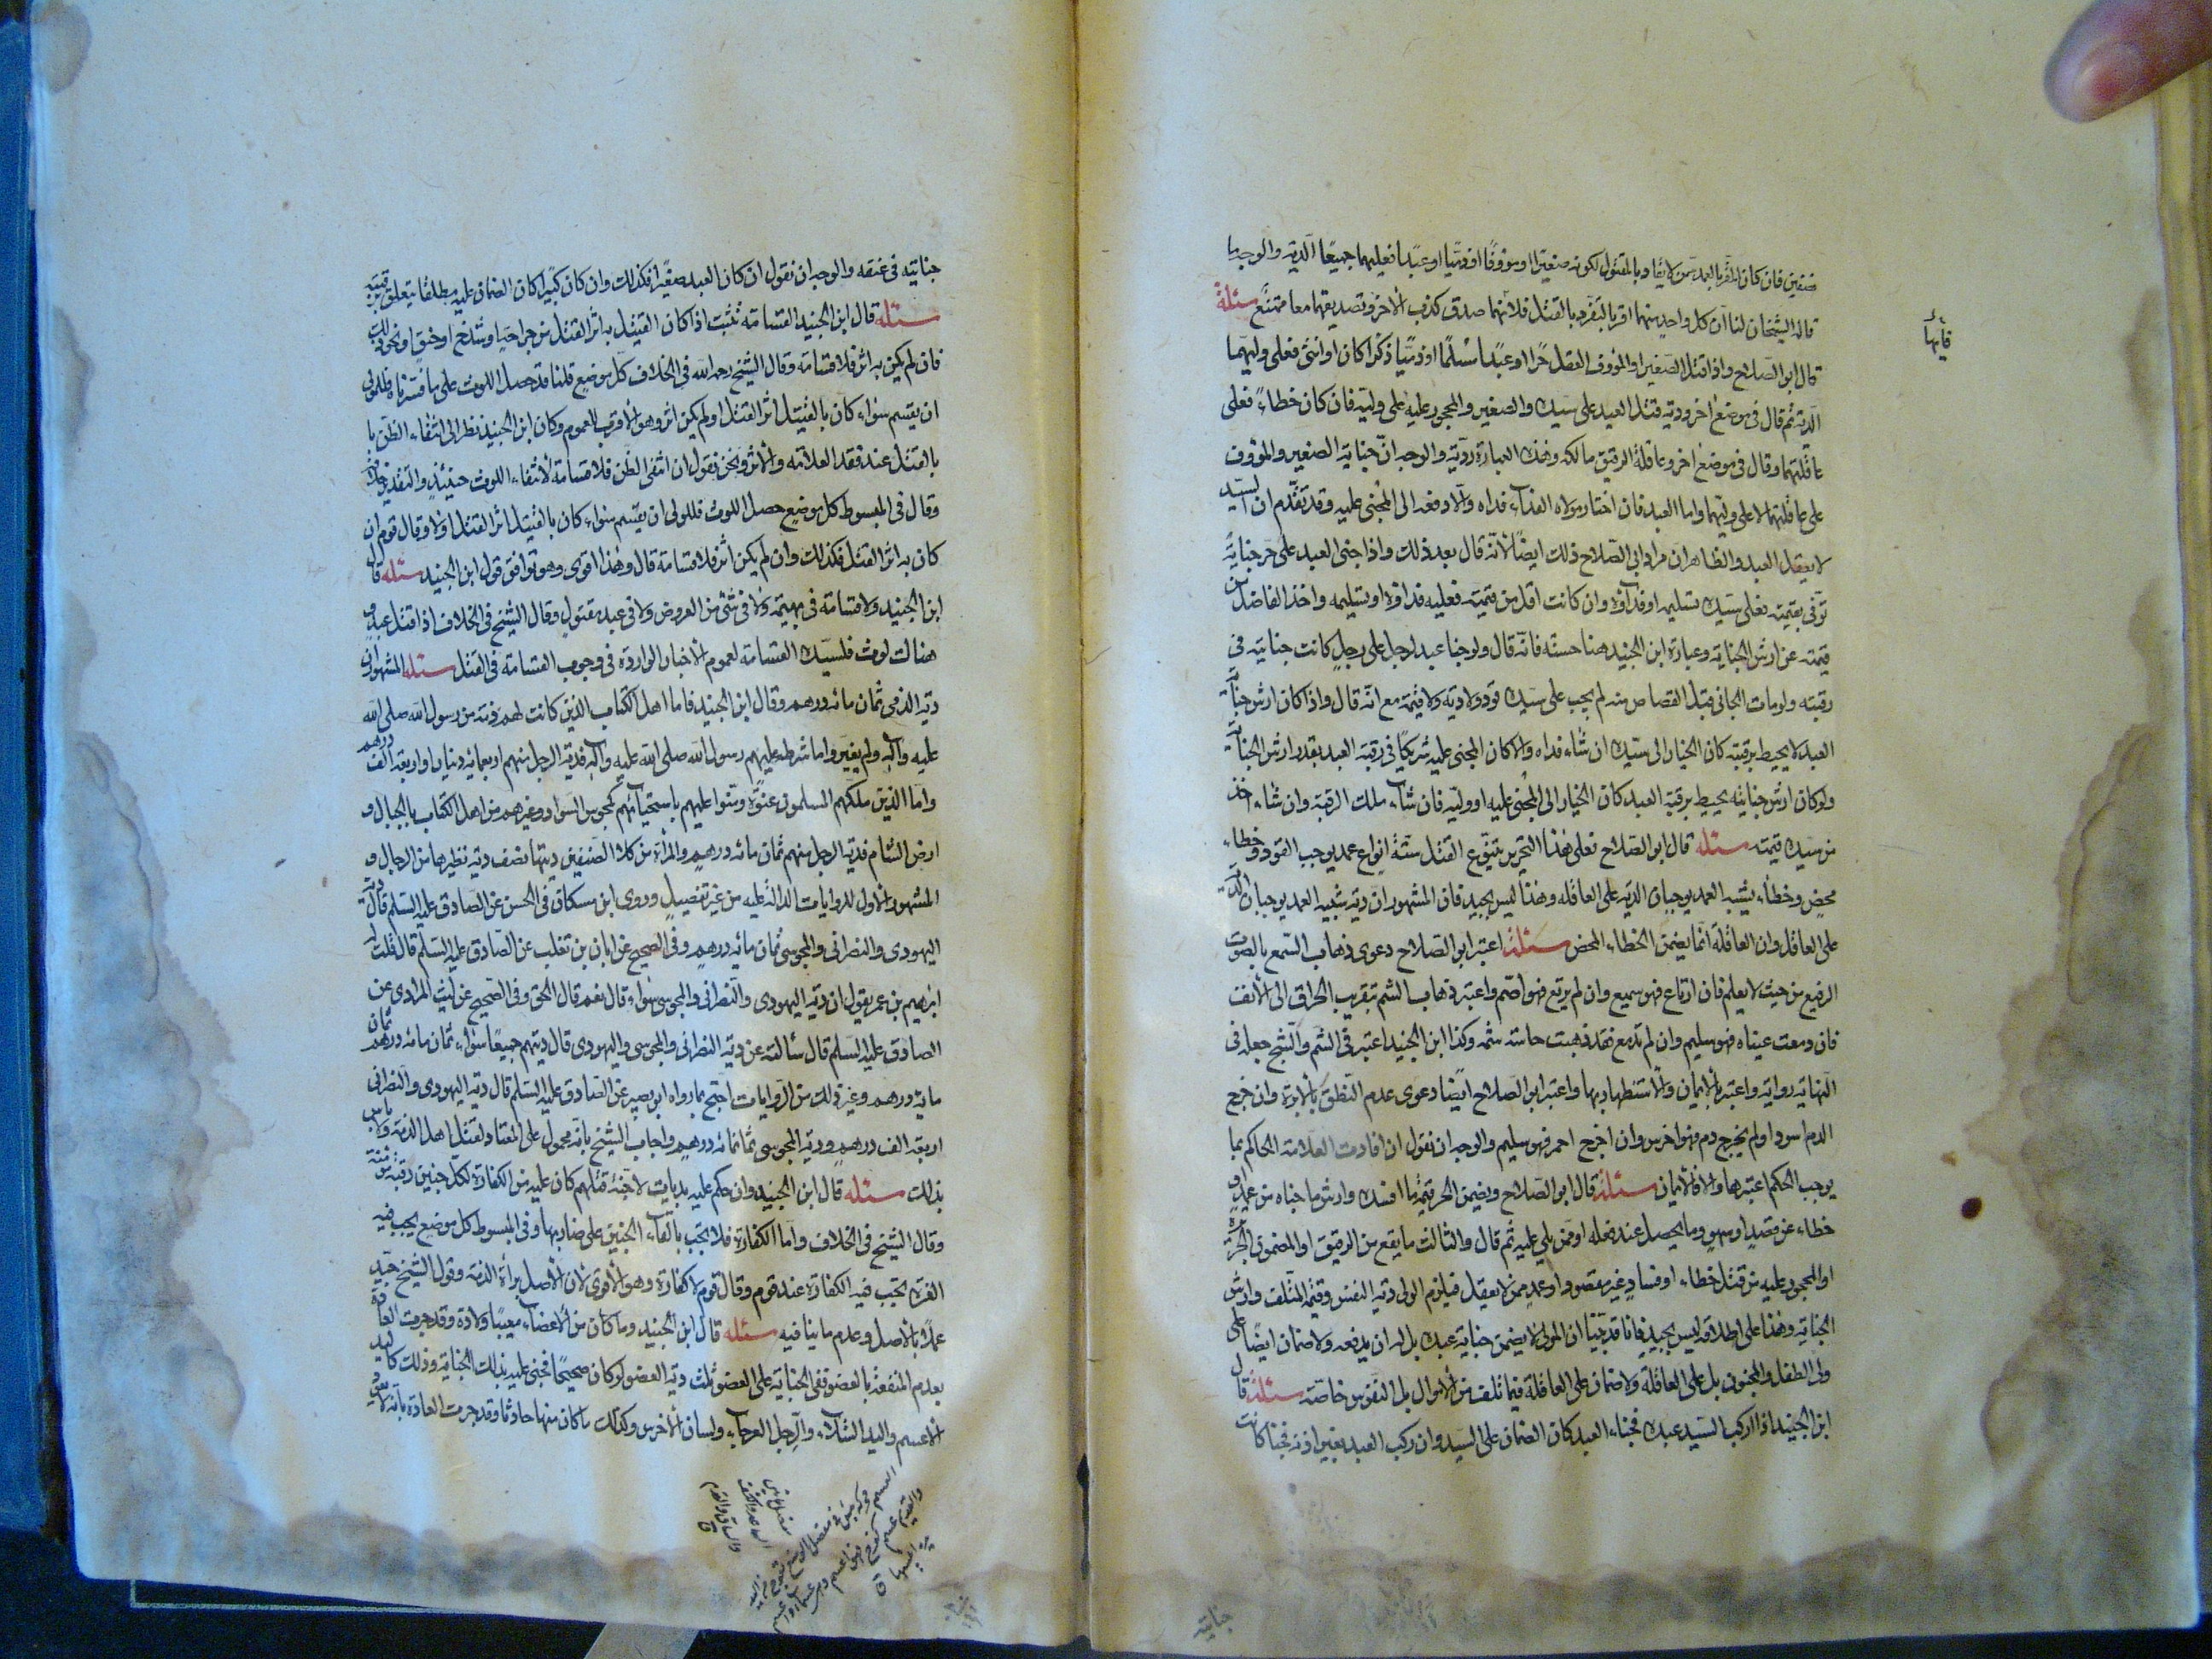 صنفين فان كان المقر بالعمد ممن لا يقاد بالمقتول لكونه صغيرا او مؤوفًا او ذميّا او عبدًا فعليهما جميعًا الدية والوجه ما
قاله الشيخان لنا ان كل واحد منهما اقر بالتفرد بالقتل فلانهما صدق كذب الاخر وتصديقهما معا ممتنع مسئلة
قال ابو الصلاح واذا قتل الصغير او المؤوف العقل حرًا او عبدًا مسلمًا او ذميّا ذكرا كان او انثى فعلى وليهما
الدية ثم قال في موضع اخر ودية قتل العبد على سيده والصغير والمحجور عليه على وليه فان كان خطاءً فعلى
عاقلتهما وقال في موضع اخر وعاقلة الرقيق مالكه وهذه العبارة رديّة والوجه انّ جناية الصغير والمؤوف
على عاقلتهما لا على وليهما واما العبد فان اختار مولاه الفداء فداه والا دفعه الى المجنى عليه وقد تقدّم ان السيد
لا يعقل العبد والظاهر ان مراد ابي الصلاح ذلك ايضًا لانّه قال بعد ذلك واذا جنى العبد على حر جناية
توفى بقيمته فعلى سيده تسليمه او فداؤه وان كانت اقل من قيمته فعليه فداؤه او تسليمه واخذ الفاضل من
قيمته عن ارش الجناية وعبارة ابن الجنيد هنا حسنة فانّه قال ولو جنا عبد لرجل على رجل كانت جنايته في
رقبته ولو مات الجاني قبل القصاص منه لم يجب على سيده قود ولا دية ولا قيمة مع انّه قال واذا كان ارش جناية
العبد لا يحيط برقبته كان الخيار الى سيده ان شاء فداه والا كان المجنى عليه شريكًا في رقبة العبد بقدر ارش الجناية
ولو كان ارش جنايته يحيط برقبة العبد كان الخيار الى المجنى عليه او وليّه فان شاء ملك الرقبة وان شاء اخذ
من سيده قيمته مسئلة قال ابو الصلاح فعلى هذا التحرير يتنوع القتل ستة انواع عمد يوجب القود وخطاء
محض وخطاء يشبه العمد يوجبان الدية على العاقلة وهذا ليس بجيد فان المشهور ان دية شبيه العمد يوجبان الدية
على العاقل وان العاقلة انما يضمن الخطاء المحض مسئلة اعتبر ابو الصلاح دعوى ذهاب السمع بالصوت
الرفيع من حيث لا يعلم فان ارتاع فهو سميع وان لم يرتع فهو اصم واعتبر ذهاب الشم بتقريب الحراق الى الانف
فان دمعت عيناه فهو سليم وان لم تدمع فقد ذهبت حاسة شمه وكذا ابن الجنيد اعتبر في الشم والشيخ جعله في
النهاية رواية واعتبر بالايمان والاستظهار بها واعتبر ابو الصلاح ايضًا دعوى عدم النطق بالابرة وان خرج
الدم اسود او لم يخرج دم فهو اخرس وان اخرج احمر فهو سليم والوجه ان نقول ان افادت العلامة الحاكم بما
يوجب الحكم اعتبرها والا فالايمان مسئلة قال ابو الصلاح ويضمن الحر قيمة ما افسده وارش ما جناه من عمد او
خطاء عن قصد او سهو وما يحصل عند فعله او ممّن يلي عليه ثم قال والثالث ما يقع من الرقيق او المضمون الجريرة
او المحجور عليه من قتل خطاء او فساد غير مقصود او عمد ممن لا يعقل فيلزم الولى دية النفس وقيمة المتلف وارش
الجناية وهذا على اطلاقه ليس بجيد فانا قد بيّنا ان المولى لا يضمن جناية عبده بل له ان يدفعه ولا ضمان ايضًا على
ولى الطفل والمجنون بل على العاقلة ولا ضمان على العاقلة فيما تلف من الاموال بل النفوس خاصة مسئلة قال
ابن الجنيد اذا اركب السيد عبده فجناء العبد كان الضمان على السيد وان ركب العبد بغير اذنه فجنا كانت
فأيهما
جنايته
جنايته في عنقه والوجه ان نقول ان كان العبد صغيرًا فكذلك وان كان كبيرًا كان الضمان عليه مطلقًا يتعلق برقبته
مسئلة قال ابن الجنيد القسامة تثبت اذا كان القتيل به اثر القتل من جراحة او شدخ او خنق او نحو ذلك
فان لم يكن به اثر فلا قسامة وقال الشيخ رحمه الله في الخلاف كل موضع قلنا قد حصل اللوث على ما فسّرناه فللولى
ان يقسم سواء كان بالقتيل اثر القتل او لم يكن اثر وهو الاقرب للعموم وكان ابن الجنيد نظر الى انتفاء الظن با
بالقتل عند فقد العلامة والاثر ونحن نقول ان انتفى الظن فلا قسامة لانتفاء اللوث حينئذ والتقدير خلافه
وقال في المبسوط كل موضع حصل اللوث فللولى ان يقسم سواء كان بالقتيل اثر القتل اولا وقال قوم ان
كان به اثر القتل فكذلك وان لم يكن اثر فلا قسامة قال وهذا اقوى وهو توافق قول ابن الجنيد مسئلة قال
ابن الجنيد ولا قسامة في بهيمة ولا في شئ من العروض ولا في عبد مقتول وقال الشيخ في الخلاف اذا قتل عبد و
هناك لوث فلسيده القسامة لعموم الاخبار الواردة في وجوب القسامة في القتل مسئلة المشهور ان
دية الذمى ثمان مائه درهم وقال ابن الجنيد فاما اهل الكتاب الذين كانت لهم ذمّة من رسول الله صلى الله
عليه وآله ولم يغيّروا ما شرط عليهم رسول الله صلى الله عليه وآله فدية الرجل منهم اربعمائه دينار او اربعة الف درهم
واما الذين ملكهم المسلمون عنوة ومنّوا عليهم باستحيائهم كمجوس السواد وغيرهم من اهل الكتاب بالجبال و
ارض الشام فدية الرجل منهم ثمان مائه درهم والمرأة من كلا الصنفين ديتها نصف دية نظيرها من الرجال و
المشهور الاول للروايات الدالّة عليه من غير تفصيل وروى ابن مسكان في الحسن عن الصادق عليه السلم قال دية
اليهودى والنصرانى والمجوسى ثمان مائه درهم وفي الصحيح عن ابان بن تغلب عن الصادق عليه السلم قال قلت له
ابرهيم بن عمر يقول ان دية اليهودى والنصرانى والمجوسى سواء قال نعم قال الحق وفي الصحيح عن ليث المرادى عن
الصادق عليه السلم قال سألته عن دية النصرانى والمجوسى واليهودى قال ديتهم جميعًا سواء ثمان مائه درهم ثمان
مائة درهم وغير ذلك من الروايات احتج بما رواه ابو بصير عن الصادق عليه السلم قال دية اليهودى والنصرانى
اربعة الف درهم ودية المجوسى ثمانمائه درهم واجاب الشيخ بانّه محمول على المعتاد لقتل اهل الذمة ولا باس
بذلك مسئلة قال ابن الجنيد وان حكم عليه بديات لاجنّة قتلهم كان عليه من الكفارة لكل جنين رقبة مؤمنة
وقال الشيخ في الخلاف واما الكفارة فلا يجب بالقاء الجنين على ضاربها وفي المبسوط كل موضع يجب فيه
الغرة يجب فيه الكفارة عند قوم وقال قوم لا كفارة وهو الاقوى لان الاصل براءة الذمة وقول الشيخ جيّد
عملًا بالاصل وعدم ما ينافيه مسئلة قال ابن الجنيد وما كان من الاعضاء معيبًا ولادة وقد جرت العادة
بعدم المنفعة بالعضو ففي الجناية على العضو ثلث دية العضو لو كان صحيحًا فجنى عليه بذلك الجناية وذلك كاليد
الاعسم واليد الشلاء والرجل العرجاء ولسان الاخرس وكذلك ما كان منها حادثا وقد جرت العادة بانّه لا يعود